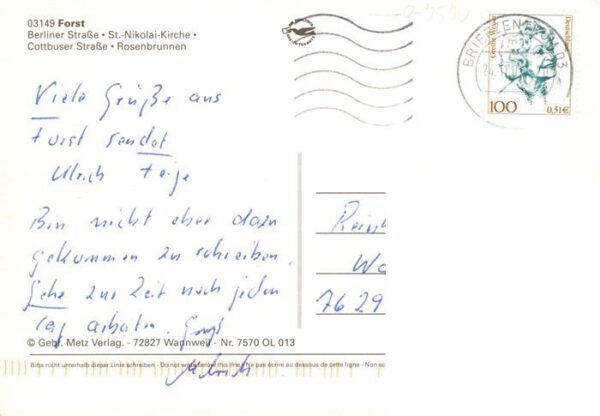 03149 Forst
Berliner Straße • St.-Nikolai-Kirche •
Cottbuser Straße • Rosenbrunnen
BRIEFZENTRUM 03
Grethe Weiser
Deutschland
100
0,51€
Viele Grüße aus
Forst sendet
Ulrich Feige
Bin nicht eher dazu
gekommen zu schreiben.
Gehe zur Zeit noch jeden
Tag arbeiten. Gruß
Ulrich
Rein
Wa
7629
© Gebr. Metz Verlag. - 72827 Wannweil - Nr. 7570 OL 013
Bitte nicht unterhalb dieser Linie schreiben - Do not write below this line - Ne pas écrire au dessous de cette ligne - Non sc